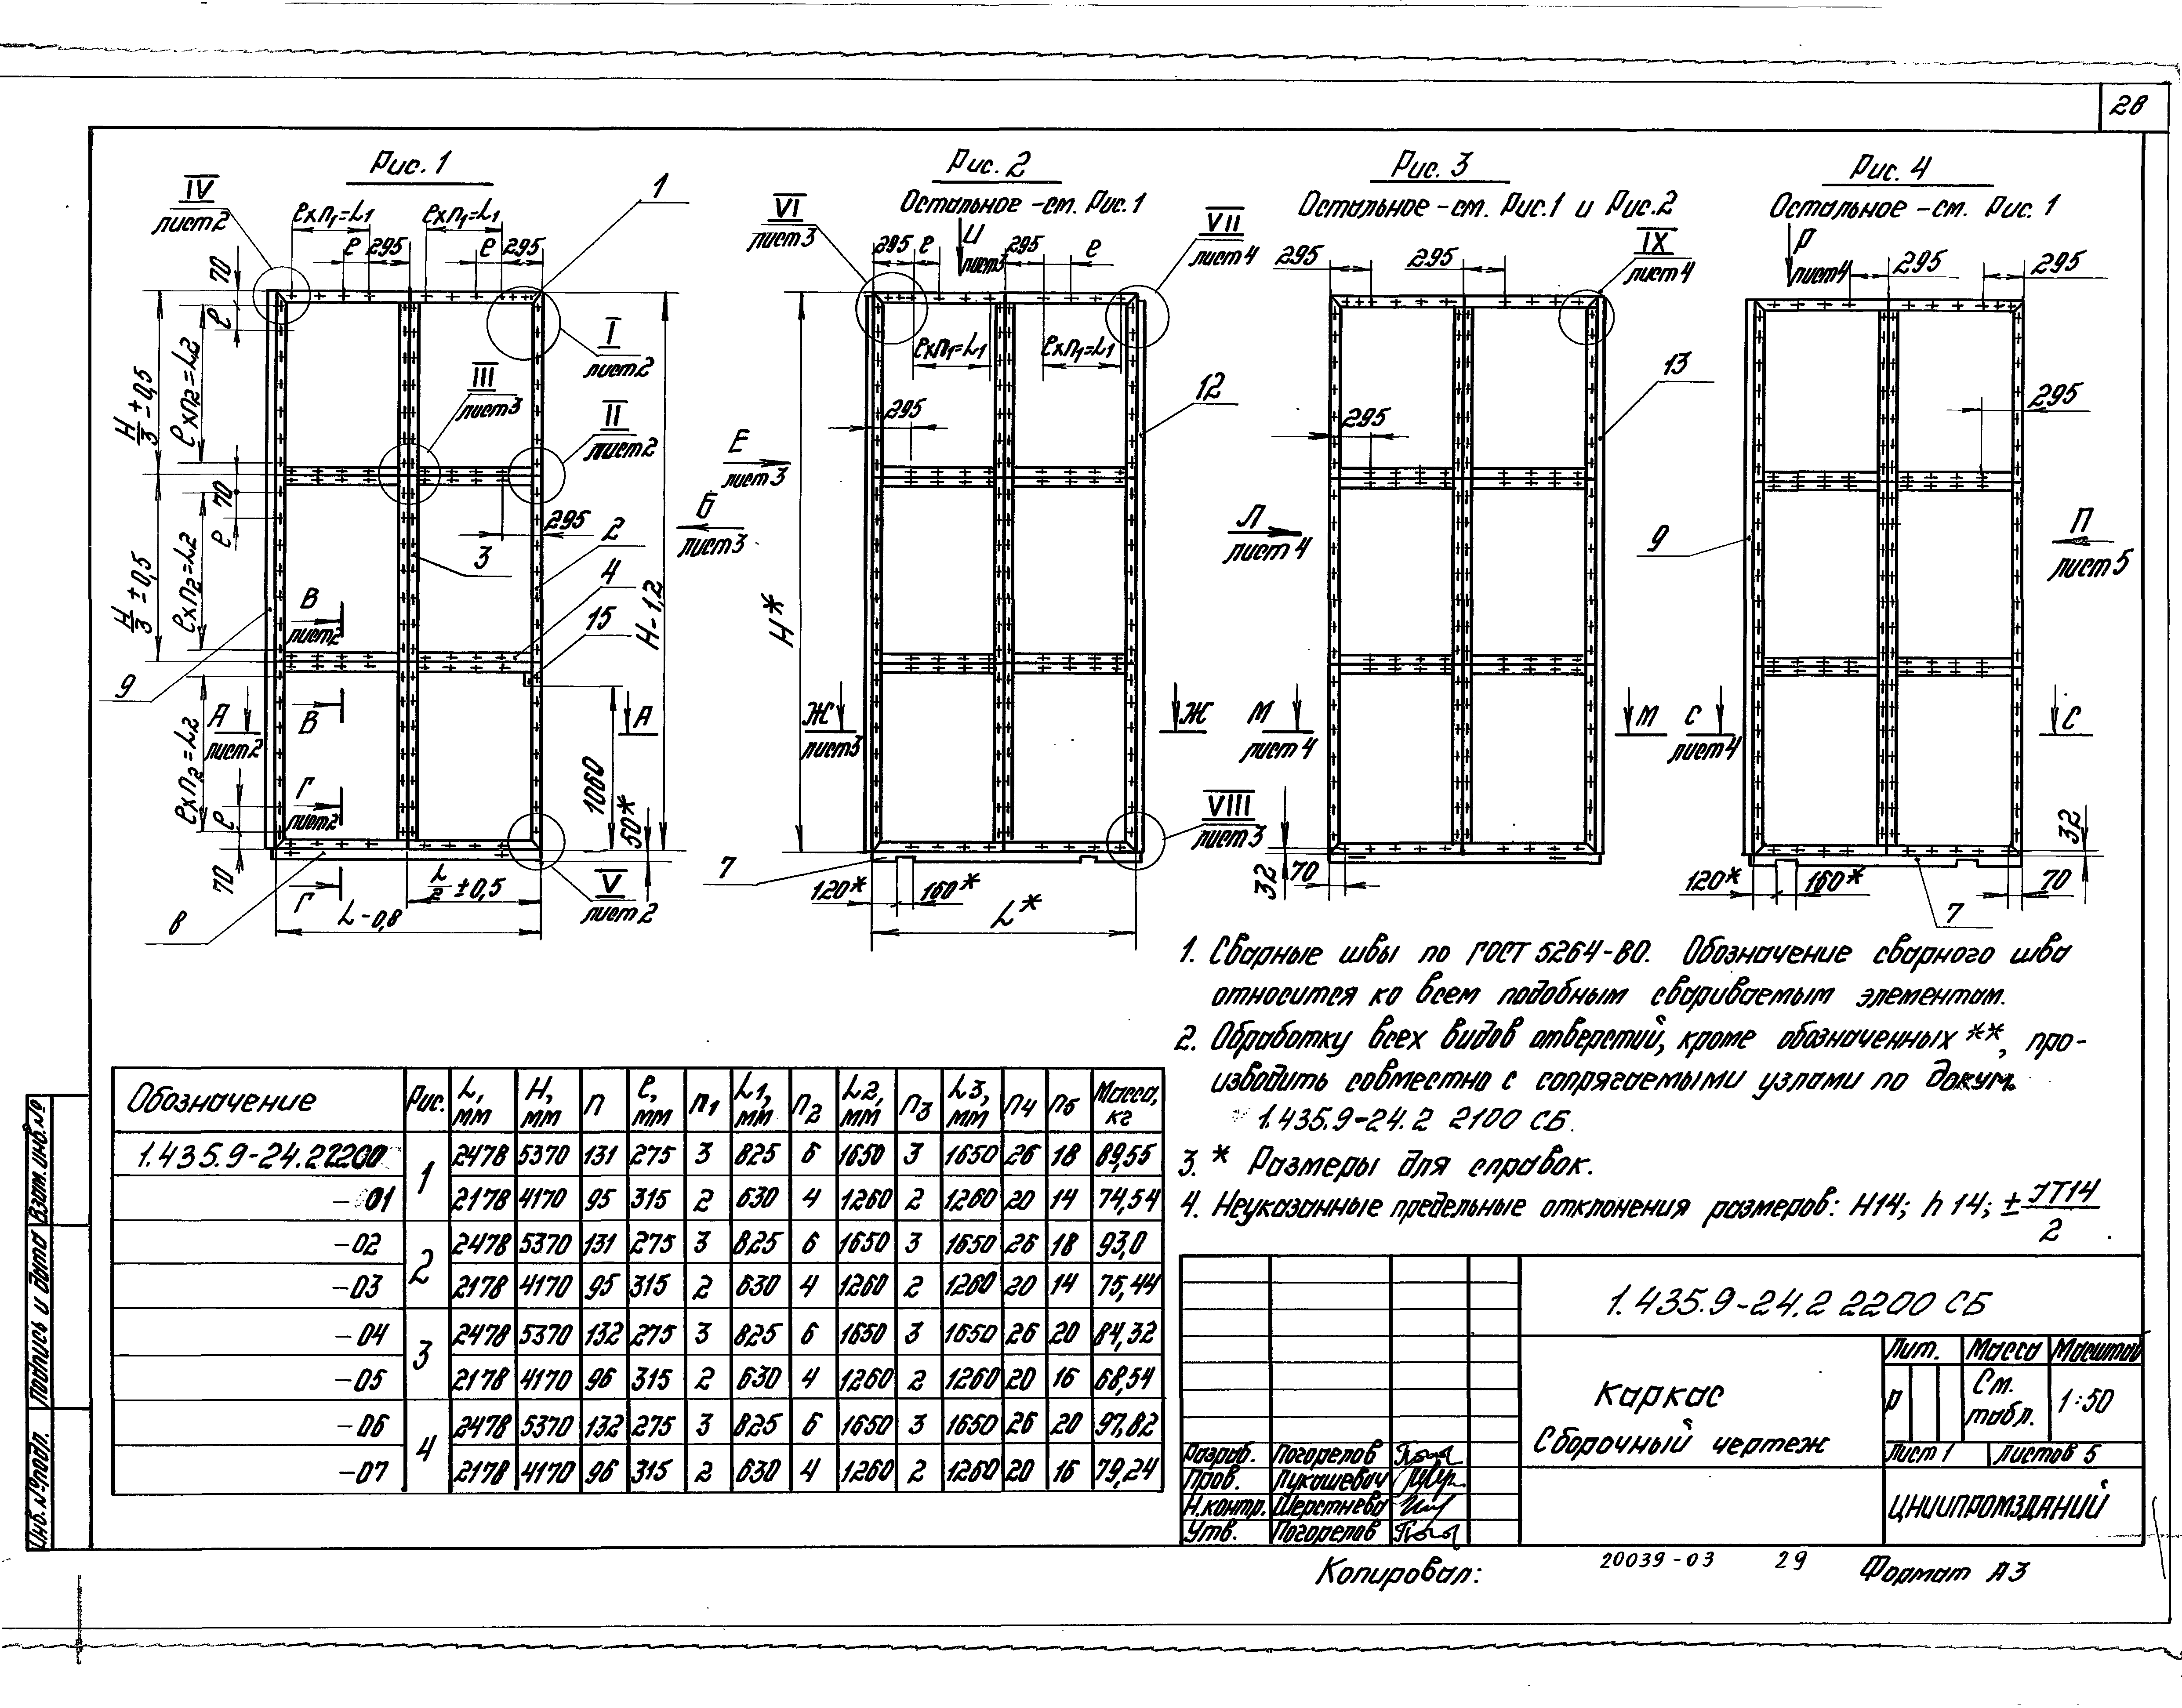 28
Рис. 1
IV
лист 2
l×n₁=L₁
l×n₁=L₁
l
295
l
295
1
70
l
H/3 ±0,5
l×n₂=L2
70
l
H/3 ±0,5
l×n₂=L2
l×n₂=L2
l
70
I
лист 2
III
лист 3
II
лист 2
295
2
3
4
15
В
лист 2
В
9
А
лист 2
А
Г
лист 2
Г
8
1060
50*
H-1,2
V
лист 2
L/2 ±0,5
L-0,8
Рис. 2
Остальное – см. Рис. 1
VI
лист 3
295
l
И
лист 5
295
l
VII
лист 4
l×n₁=L1
l×n₁=L1
295
12
Е
лист 3
Б
лист 3
H*
Ж
лист 3
Ж
VIII
лист 3
7
120*
160*
L*
Рис. 3
Остальное – см. Рис. 1 и Рис. 2
295
295
IX
лист 4
13
295
Л
лист 4
М
лист 4
М
32
70
Рис. 4
Остальное – см. Рис. 1
Р
лист 4
295
295
295
9
П
лист 5
С
лист 4
С
32
120*
160*
70
7
1. Сварные швы по ГОСТ 5264-80. Обозначение сварного шва
относится ко всем подобным свариваемым элементам.
2. Обработку всех видов отверстий, кроме обозначенных **, про-
изводить совместно с сопрягаемыми узлами по докум.
1.435.9-24.2 2100 СБ.
3. * Размеры для справок.
4. Неуказанные предельные отклонения размеров: H14; h14; ± IT14/2.
Обозначение Рис. L, мм H, мм n l, мм n₁ L1, мм n₂ L2, мм n₃ L3, мм n₄ n₅ Масса, кг
1.435.9-24.2 2200 1 2478 5370 131 275 3 825 6 1650 3 1650 26 18 89,55
-01 2178 4170 95 315 2 630 4 1260 2 1260 20 14 74,54
-02 2 2478 5370 131 275 3 825 6 1650 3 1650 26 18 93,0
-03 2178 4170 95 315 2 630 4 1260 2 1260 20 14 75,44
-04 3 2478 5370 132 275 3 825 6 1650 3 1650 26 20 84,32
-05 2178 4170 96 315 2 630 4 1260 2 1260 20 16 68,54
-06 4 2478 5370 132 275 3 825 6 1650 3 1650 26 20 97,82
-07 2178 4170 96 315 2 630 4 1260 2 1260 20 16 79,24
1.435.9-24.2 2200 СБ
Каркас
Сборочный чертеж
Лит. Масса Масштаб
Р См. табл. 1:50
Лист 1 Листов 5
ЦНИИПРОМЗДАНИЙ
Разраб. Погорелов
Пров. Лукашевич
Н.контр. Шерстнева
Утв. Погорелов
Инв. № подл. Подпись и дата Взам. инв. №
Копировал:
20039-03 29
Формат А3